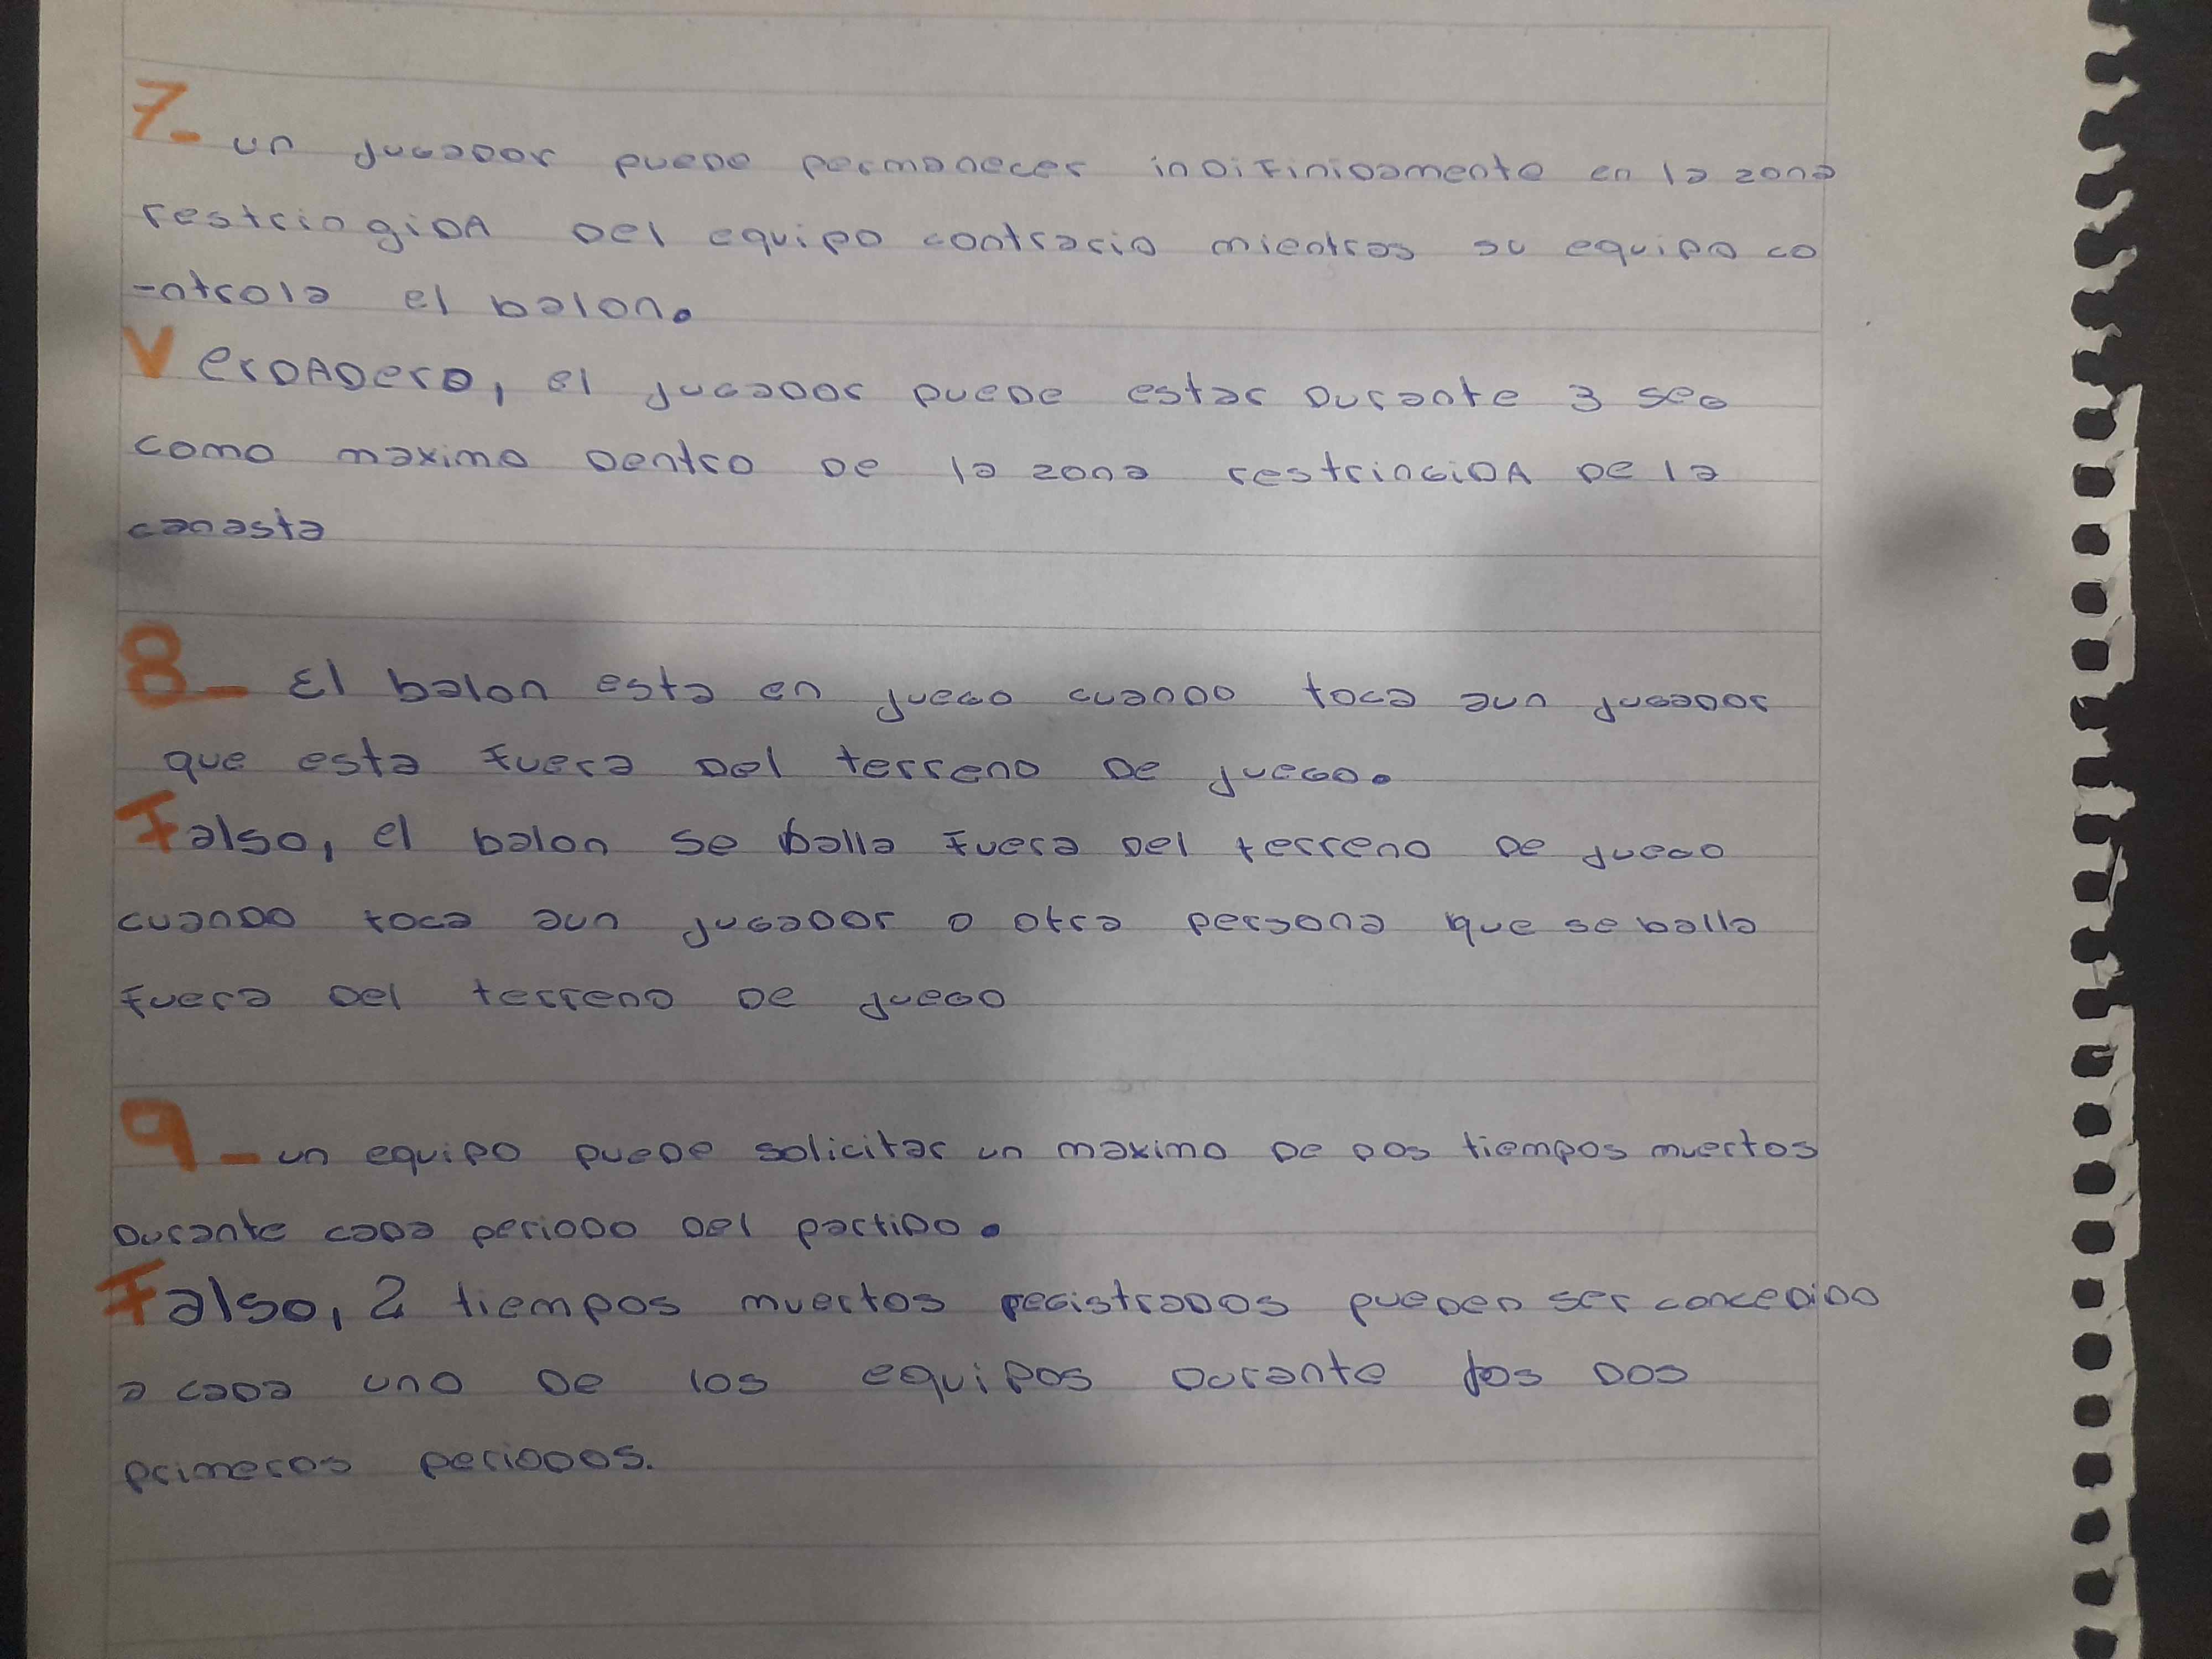 7- un jugador puede permanecer indifinidamente en la zona
restringida del equipo contrario mientras su equipo co
-ntrola el balon.
Verdadero, el jugador puede estar durante 3 seg
como maximo dentro de la zona restringida de la
canasta
8- El balon esta en juego cuando toca aun jugador
que esta fuera del terreno de juego.
Falso, el balon se balla fuera del terreno de juego
cuando toca aun jugador o otra persona que se balla
fuera del terreno de juego
9- un equipo puede solicitar un maximo de dos tiempos muertos
durante cada periodo del partido.
Falso, 2 tiempos muertos registrados pueden ser concedido
a cada uno de los equipos durante los dos
primeros periodos.